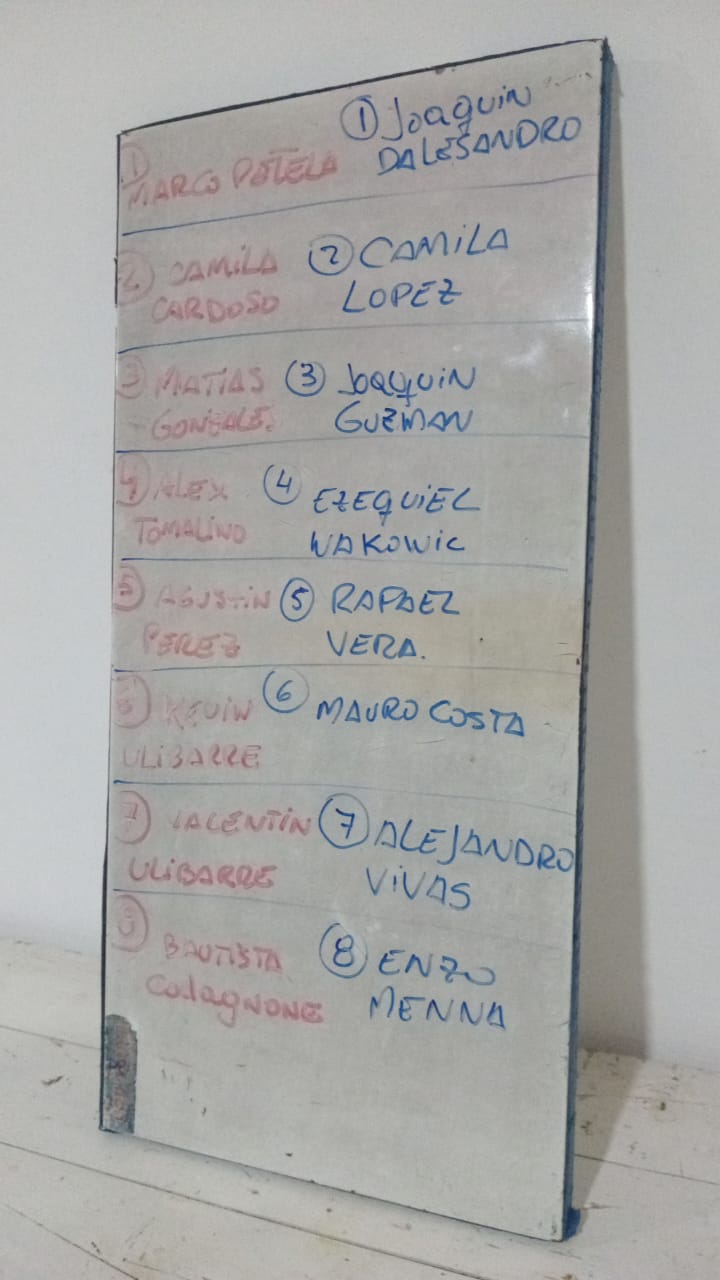 ① MARCO POTELA
① Joaquin
DALESANDRO
② CAMILA
CARDOSO
② CAMILA
LOPEZ
③ MATIAS
GONZALEZ
③ Joaquin
GUZMAN
④ ALEX
TOMALINO
④ EZEQUIEL
WAKOWIC
⑤ AGUSTIN
PEREZ
⑤ RAFAEL
VERA.
⑥ KEVIN
ULIBARRE
⑥ MAURO COSTA
⑦ VALENTIN
ULIBARRE
⑦ ALEJANDRO
VIVAS
⑧ BAUTISTA
Colagnone
⑧ ENZO
MENNA